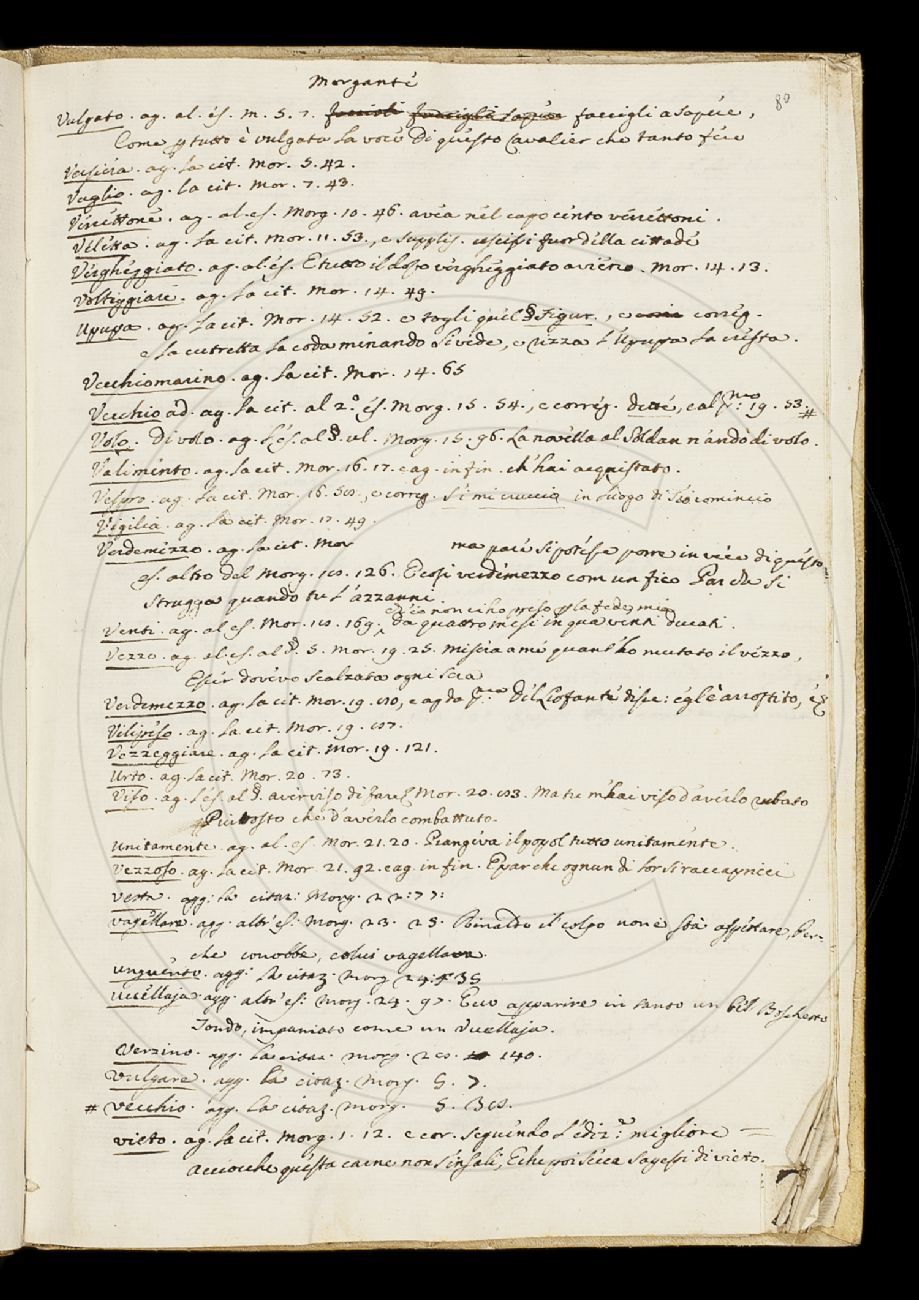 Morgante
80
Vulgato. ag. al. es. m. 5. 7. faccigli asapere,
Come p tutto è vulgata la voce Di questo Cavalier che tanto fece
Vescica. ag. la cit. Mor. 5. 42.
Vaglio. ag. la cit. Mor. 7. 43.
Verrettone. ag. al. es. Morg. 10. 46. avea nel capo cento verrettoni.
Veletta. ag. la cit. Mor. 11. 53., e supplis. uscissi fuor della cittade
Vergheggiato. ag. al. es. E tutto il dosso vergheggiato avieno. Mor. 14. 13.
Volteggiare. ag. la cit. Mor. 14. 49.
Upupa. ag. la cit. Mor. 14. 52. e togli quel § Figur., e correg.
e la cutretta la coda menando Si vede, e rizza l'Upupa la cresta.
Vecchiomarino. ag. la cit. Mor. 14. 65
Vecchio ad. ag. la cit. al 2.° es. Morg. 15. 54., e correg. dette, e al p.mo 19. 53. #
Volo. Di volo. ag. l'es. al §. ul. Morg. 15. 96. La novella al Soldan n'andò di volo.
Valimento. ag. la cit. Mor. 16. 17. e ag. in fin. ch'hai acquistato.
Vespro. ag. la cit. Mor. 16. e correg. in luogo di comincio
Vigilia. ag. la cit. Mor. 17. 49.
Verdemezzo. ag. la cit. Mor ma pare si potesse porre in vece di questo
es. altro del Morg. 18. 126. E così verdemezzo com un fico Par che si
strugga quando tu l'azzanni.
ch'io non ci ho preso p la fede mia
Venti. ag. al es. Mor. 18. 169. da quattro mesi in qua venti ducati.
Vezzo. ag. al. es. al §. 5. Mor. 19. 25. Misera a me quant'ho mutato il vezzo,
Esser dovevo scalzata ogni sera
Verdemezzo. ag. la cit. Mor. 19. e ag. da p.mo Dell Liofante disse: egl'è arrostito, &
Vilipeso. ag. la cit. Mor. 19. 87.
Vezzeggiare. ag. la cit. Mor. 19. 121.
Urto. ag. la cit. Mor. 20. 73.
Viso. ag. l'es. al §. aver viso di fare & Mor. 20. 83. Ma tu m'hai viso d'averlo rubato
Piuttosto che d'averlo combattuto.
Unitamente. ag. al. es. Mor. 21. 20. Piangeva il popol tutto unitamente.
Vezzoso. ag. la cit. Mor. 21. 92. e ag. in fin. E par che ognun di lor si raccapricci
Vetta. agg. la citaz: Morg. 22: 77:
Vagellare. agg. altr'es: Morg. 23. 25. Rinaldo il colpo non è sta aspettare, Per-
che conobbe, colui vagellava
Unguento. agg: la citaz. Morg 24. 35
Uccellaja. agg. altr'es: Morg. 24. 97. Ecco apparire in tanto un bel Boschetto
Tondo, impaniato come un Vccellaja.
Verzino. agg. la citaz. morg. 28. 140.
Vulgare. agg. la citaz. Morg. 5. 7.
# Vecchio. agg. la citaz. Morg. 5. 38.
Vieto. ag. la cit. Morg. 1. 12. e cor. seguendo l'ediz.e migliore =
Acciocche questa carne non s'insali, E che poi secca sapessi di vieto.